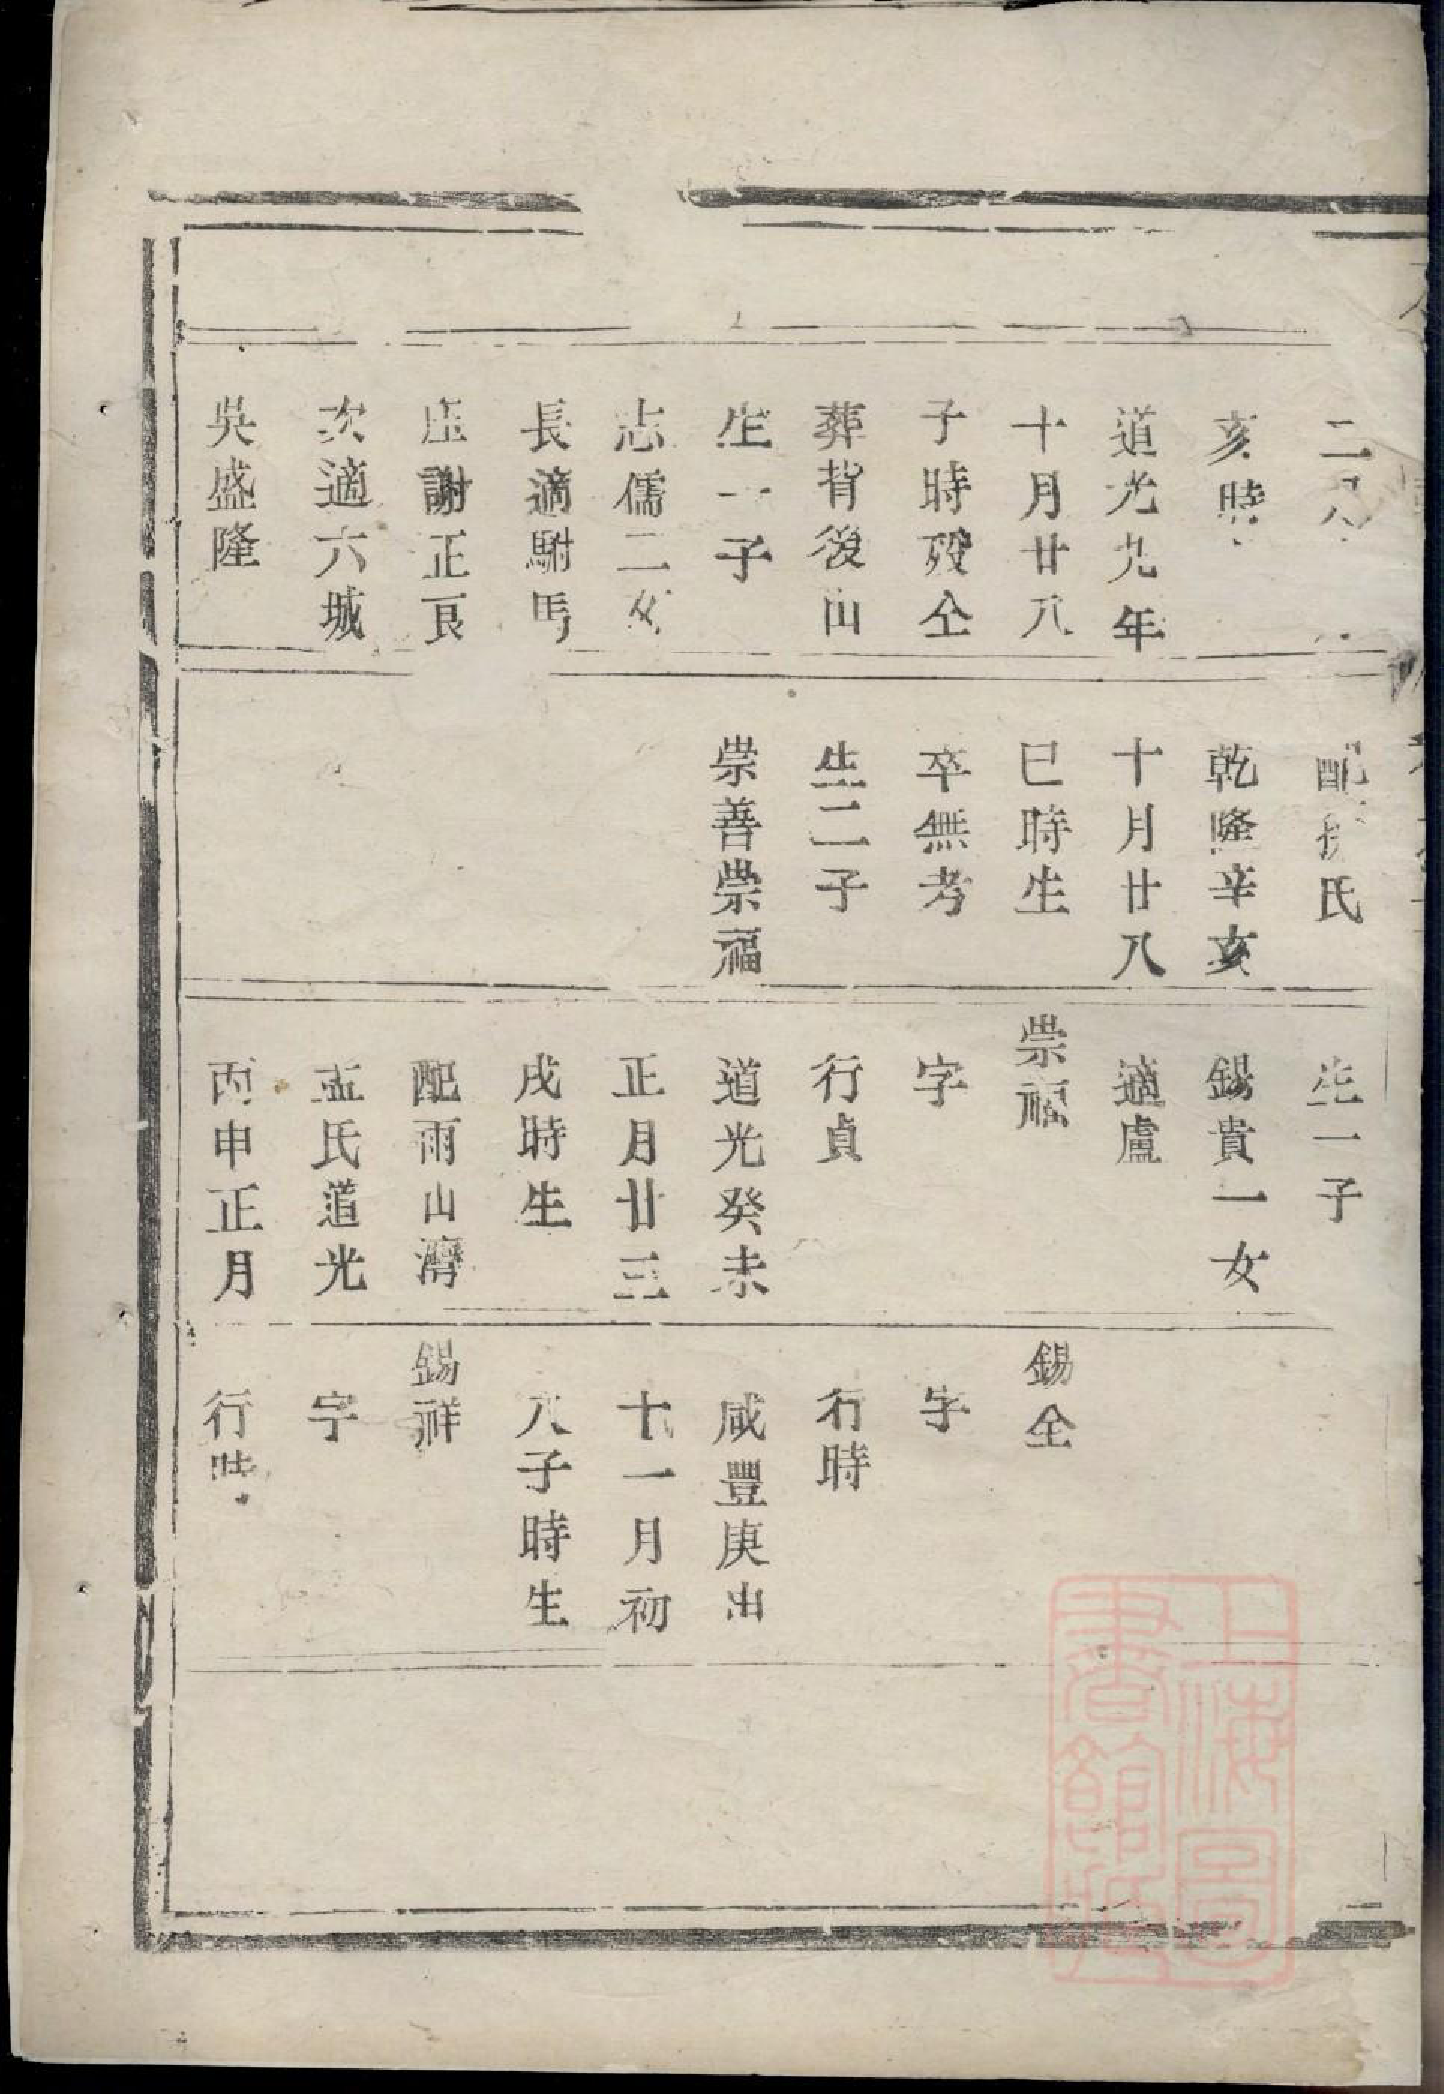 二
亥時
道光九年
十月廿八
子時歿仝
葬背後山
生一子
志儒二女
長適駙馬
庄謝正良
次適六城
吳盛隆
配氏
乾隆辛亥
十月廿八
巳時生
卒無考
生二子
崇善崇福
生一子
錫貴一女
適盧
崇福
字
行貞
道光癸未
正月廿三
戌時生
配雨山灣
孟氏道光
丙申正月
錫全
字
行時
咸豐庚申
十一月初
八子時生
錫祥
字
行時
上海圖
書館藏